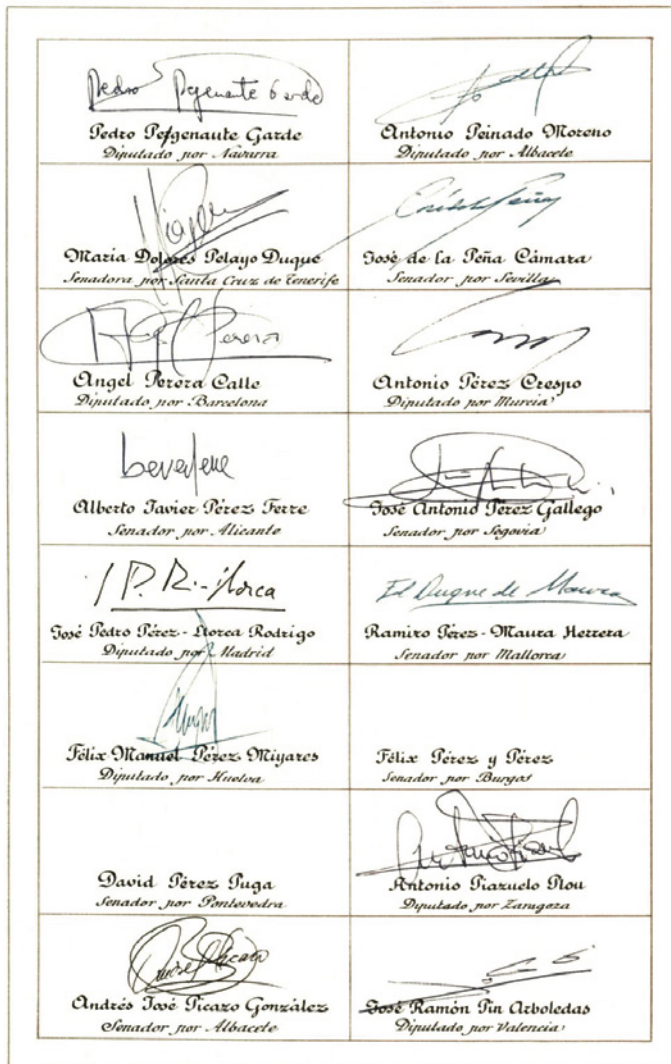 Pedro Pegenaute Garde
Pedro Pegenaute Garde
Diputado por Navarra
Antonio Peinado Moreno
Diputado por Albacete
María Dolores Pelayo Duque
Senadora por Santa Cruz de Tenerife
José de la Peña Cámara
Senador por Sevilla
Perera
Angel Perera Calle
Diputado por Barcelona
Antonio Pérez Crespo
Diputado por Murcia
Alberto Javier Pérez Ferre
Senador por Alicante
José Antonio Pérez Gallego
Senador por Segovia
J P. R.-Llorca
José Pedro Pérez-Llorca Rodrigo
Diputado por Madrid
El Duque de Maura
Ramiro Pérez-Maura Herrera
Senador por Mallorca
Félix Manuel Pérez Miyares
Diputado por Huelva
Félix Pérez y Pérez
Senador por Burgos
David Pérez Puga
Senador por Pontevedra
Antonio Piazuelo Plou
Diputado por Zaragoza
Andrés José Picazo González
Senador por Albacete
José Ramón Pin Arboledas
Diputado por Valencia